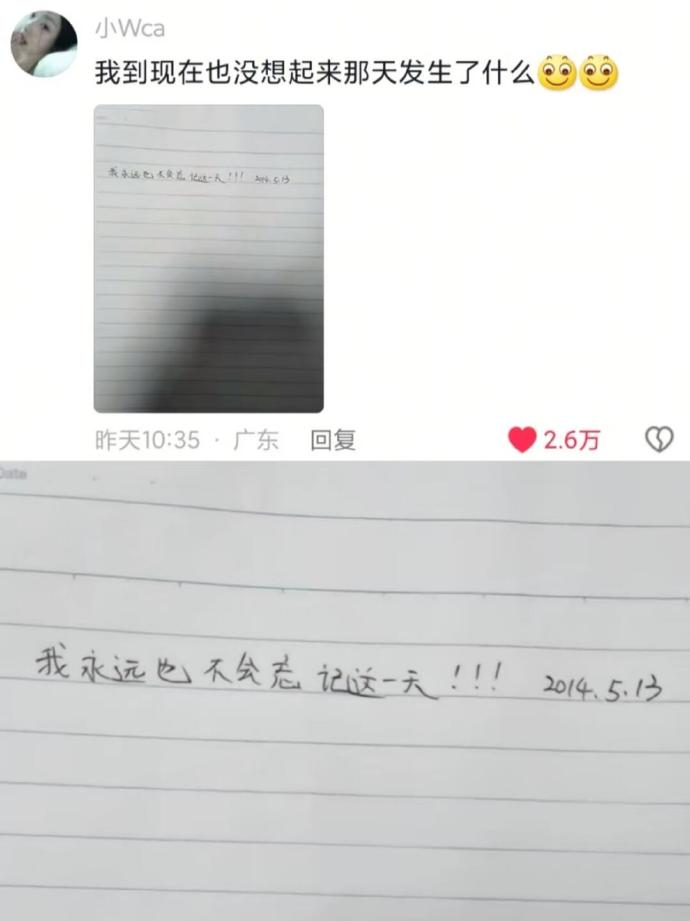 小Wca
我到现在也没想起来那天发生了什么
我永远也不会忘记这一天!!! 2014.5.13
昨天10:35 · 广东 回复 2.6万
Date
我永远也不会忘记这一天!!! 2014.5.13